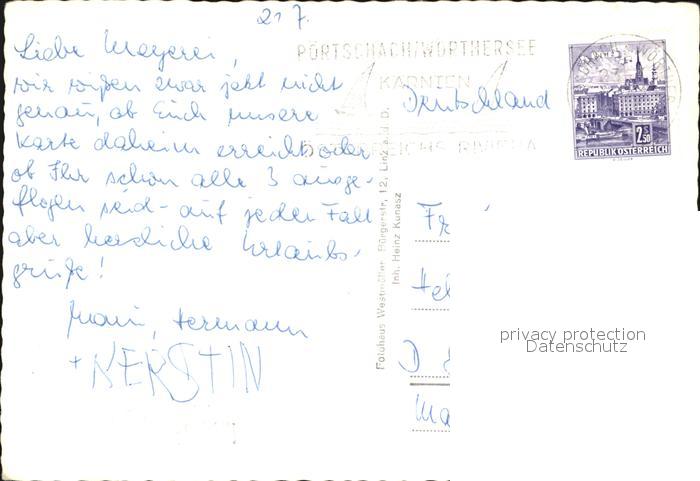 21 7.
Liebe Mayerei,
wir wissen zwar jetzt nicht
genau, ob Euch unsere
Karte daheim erreicht oder
ob Ihr schon alle 3 ausge-
flogen seid - auf jeden Fall
aber herzliche Urlaubs-
grüße!
Hermann
+ KERSTIN
PÖRTSCHACH/WÖRTHERSEE
KÄRNTEN
ÖSTERREICHS RIVIERA
Deutschland
2.50
REPUBLIK ÖSTERREICH
Fotohaus Westmüller, Bürgerstr. 12, Linz a. d. D.
Inh. Heinz Kunasz
Fr
Hel
D 8
Ma
privacy protection
Datenschutz